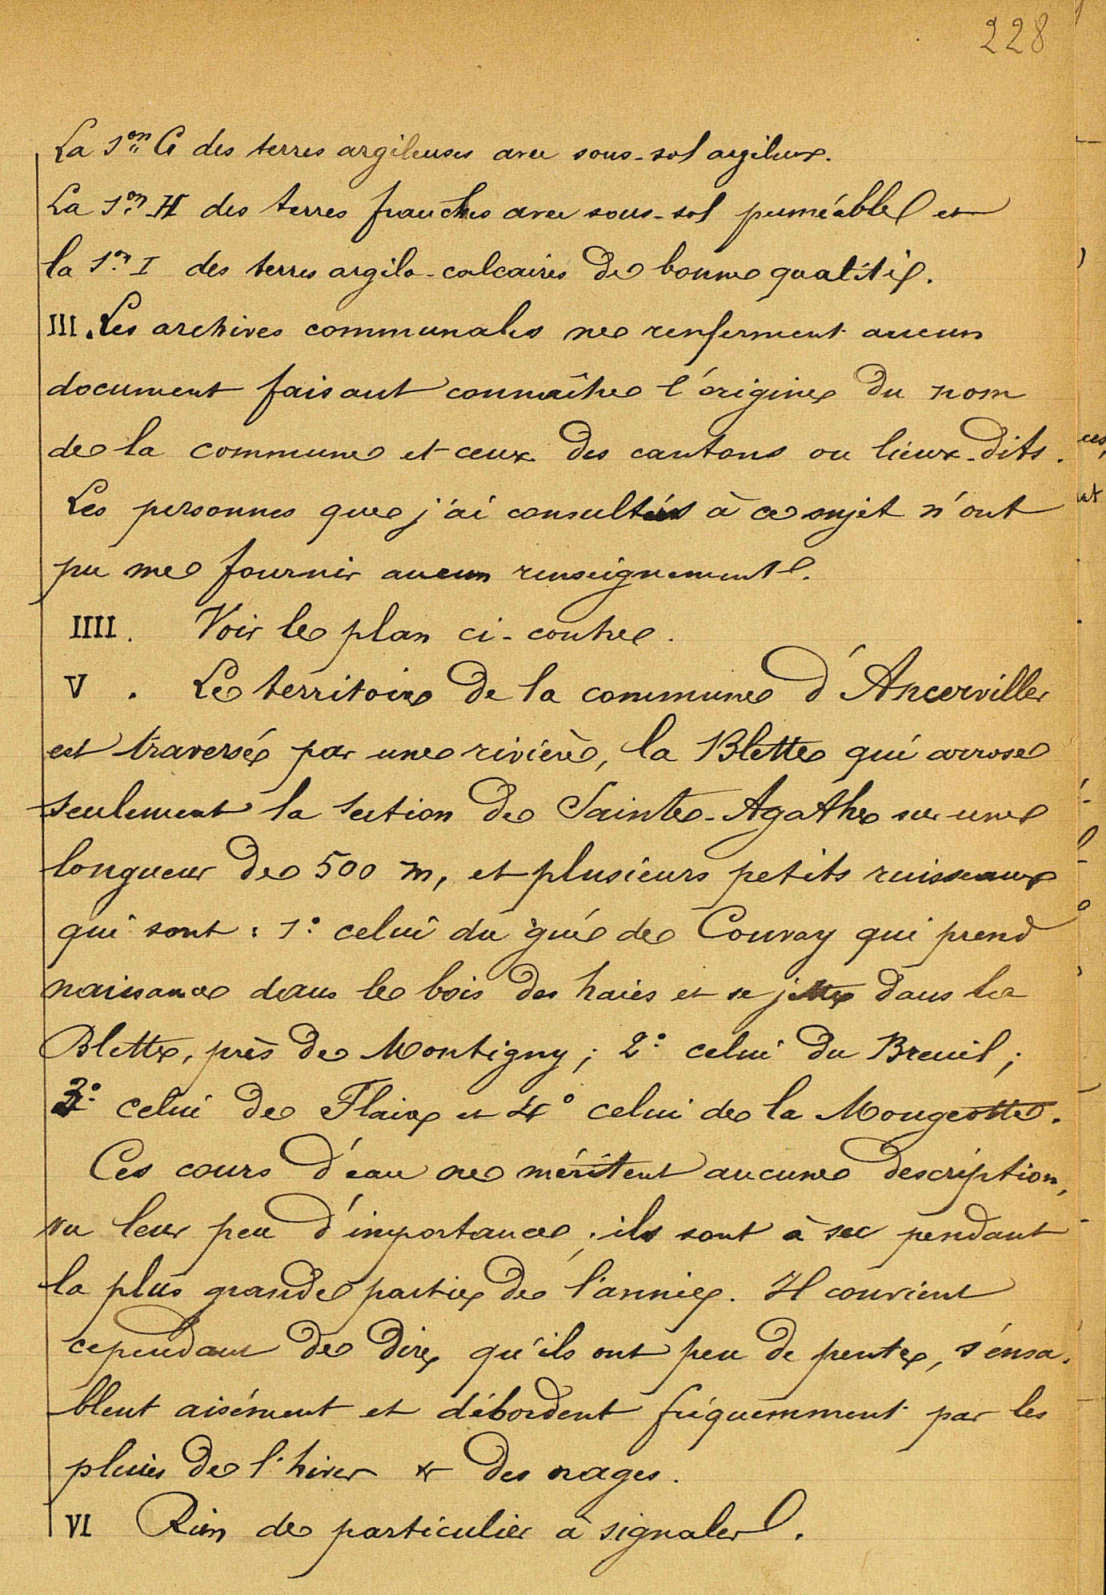 228
La 5.on G des terres argileuses avec sous-sol argileux.
La 5.on H des terres franches avec sous-sol perméable et
la 5.on I des terres argilo-calcaires de bonne qualité.
III. Les archives communales ne renferment aucun
document faisant connaître l'origine du nom
de la commune et ceux des cantons ou lieux-dits.
Les personnes que j'ai consultées à ce sujet n'ont
pu me fournir aucun renseignement.
IIII. Voir le plan ci-contre.
V. Le territoire de la commune d'Ancerviller
est traversé par une rivière, la Blette qui arrose
seulement la section de Sainte-Agathe sur une
longueur de 500 m, et plusieurs petits ruisseaux
qui sont : 1° celui du gué de Couvay qui prend
naissance dans le bois des haies et se jette dans la
Blette, près de Montigny ; 2° celui du Breuil ;
3° celui de Flaix et 4° celui de la Mougeotte.
Ces cours d'eau ne méritent aucune description,
vu leur peu d'importance ; ils sont à sec pendant
la plus grande partie de l'année. Il convient
cependant de dire qu'ils ont peu de pente, s'ensa-
blent aisément et débordent fréquemment par les
pluies de l'hiver & des orages.
VI Rien de particulier à signaler.